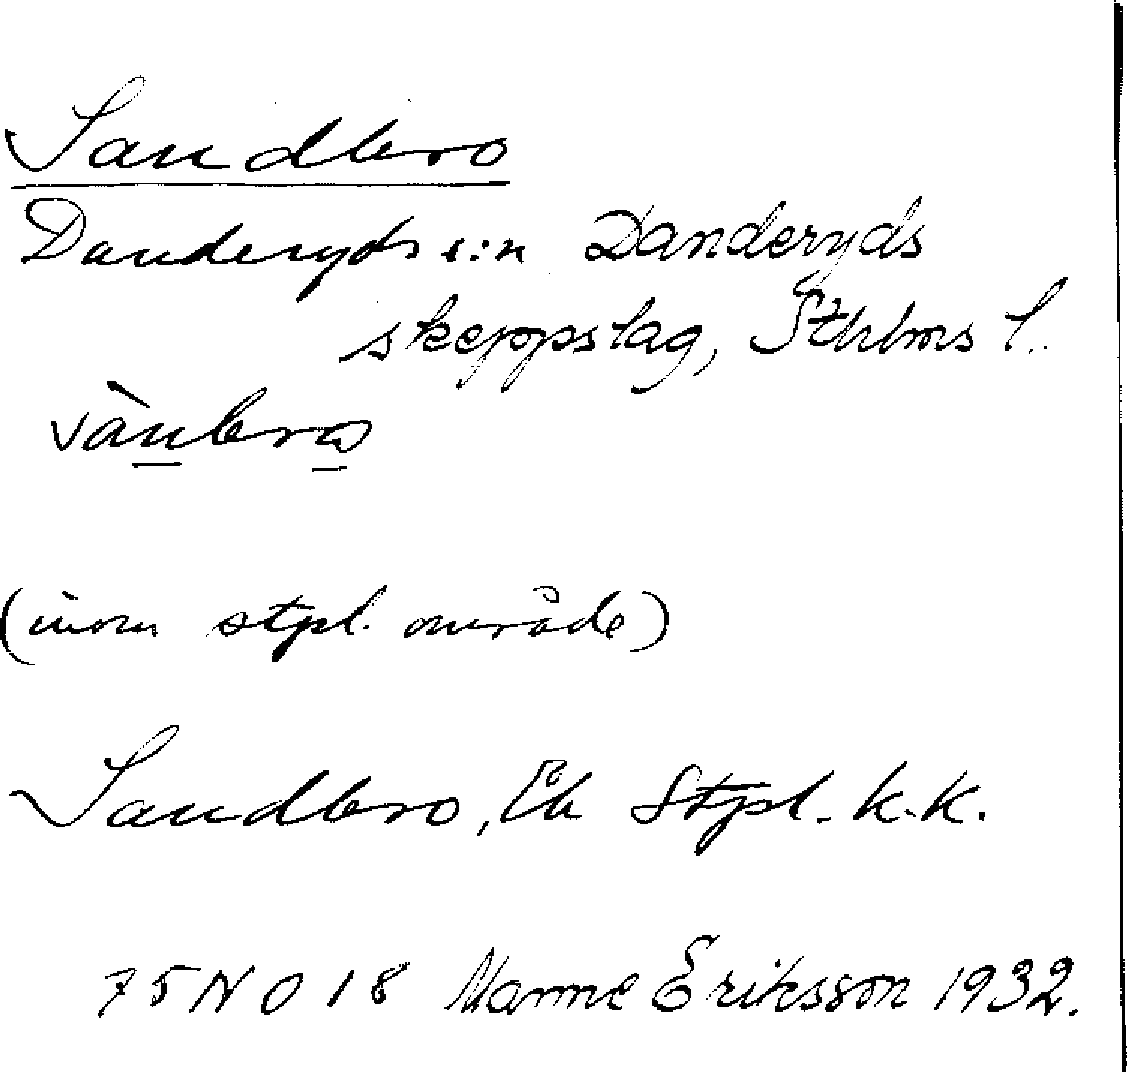 Sandbro
Danderyds s:n Danderyds
skeppslag, Sthlms l.
sànbro
(inom stpl. område)
Sandbro, Stpl. k.k.
75 NO 18 Manne Eriksson 1932.